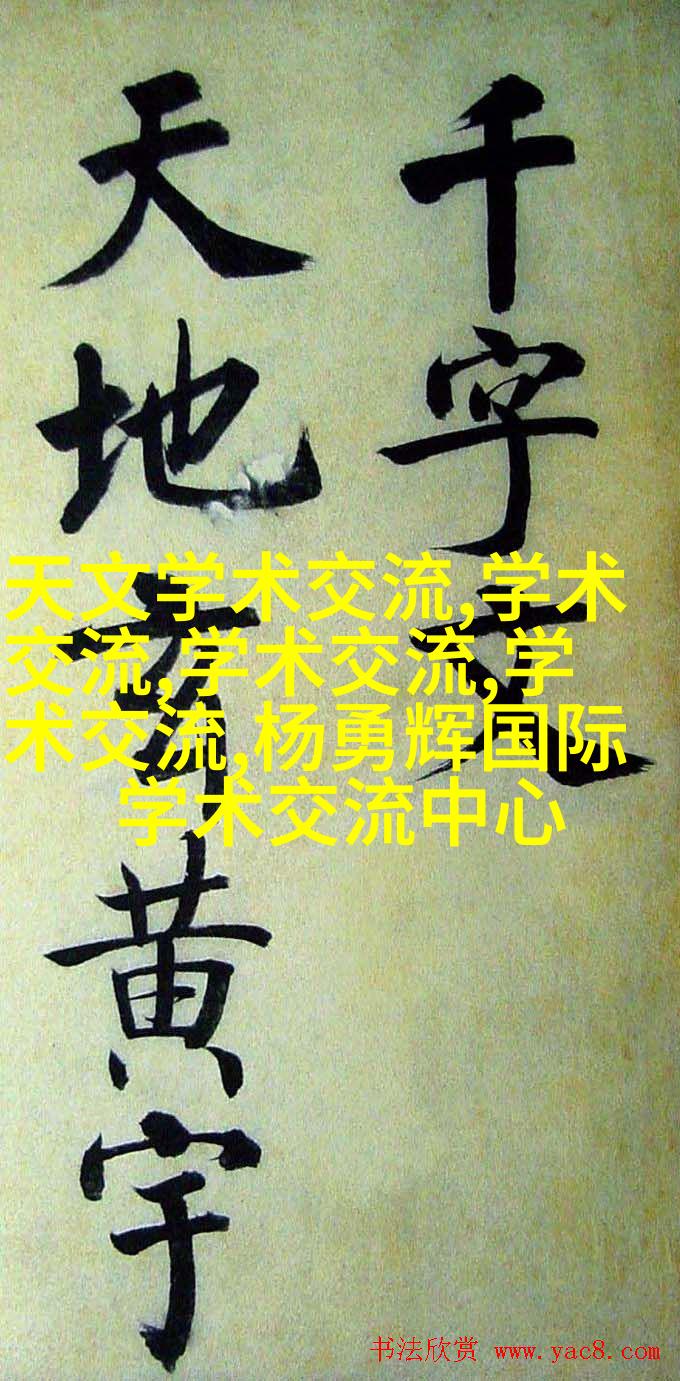 千字文
天地玄黄宇
天文学术交流,学术
交流,学术交流,学
术交流,杨勇辉国际
学术交流中心
书法欣赏 www.yac8.com